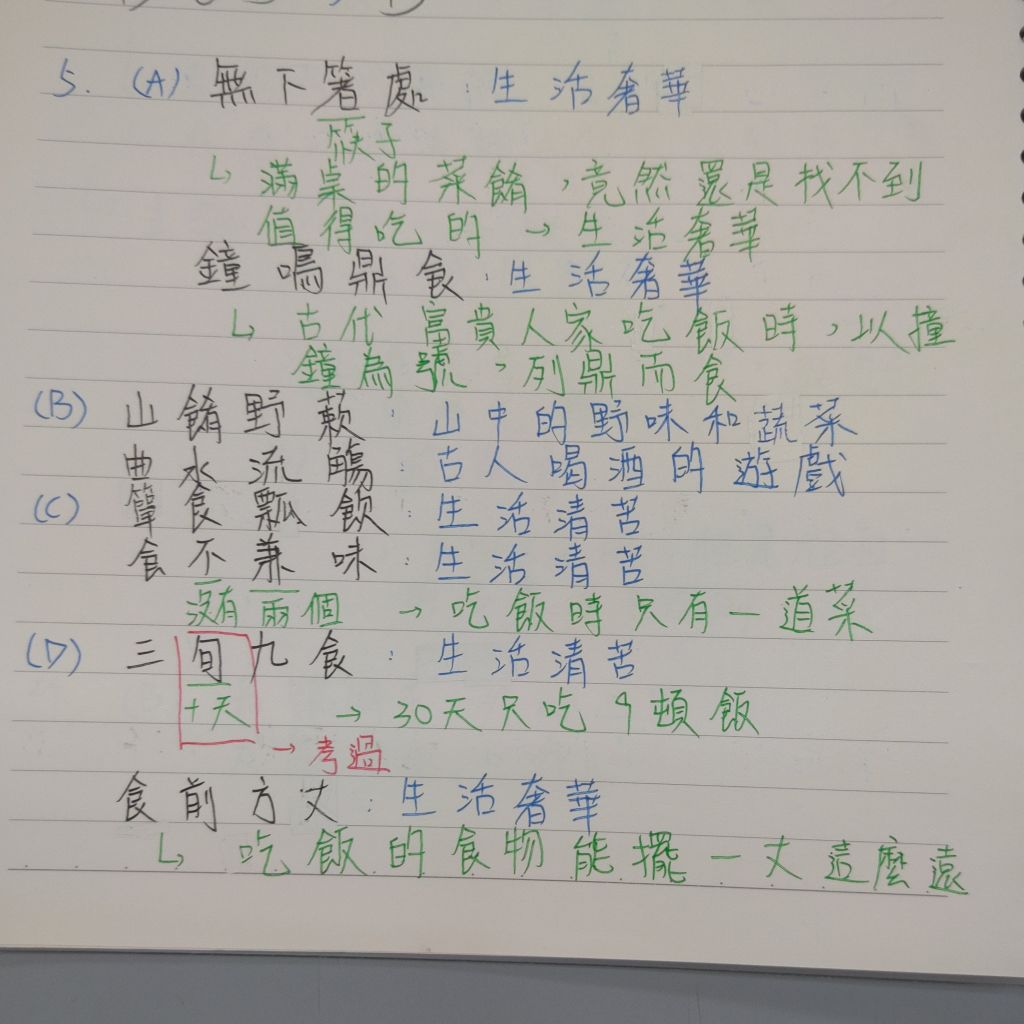 5. (A) 無下箸處：生活奢華
筷子
↳ 滿桌的菜餚，竟然還是找不到
值得吃的 → 生活奢華
鐘鳴鼎食：生活奢華
↳ 古代富貴人家吃飯時，以撞
鐘為號，列鼎而食
(B) 山餚野蔌：山中的野味和蔬菜
曲水流觴：古人喝酒的遊戲
(C) 簞食瓢飲：生活清苦
食不兼味：生活清苦
沒有 兩個 → 吃飯時只有一道菜
(D) 三旬九食：生活清苦
十天 → 30天只吃9頓飯
→ 考過
食前方丈：生活奢華
↳ 吃飯的食物能擺一丈這麼遠